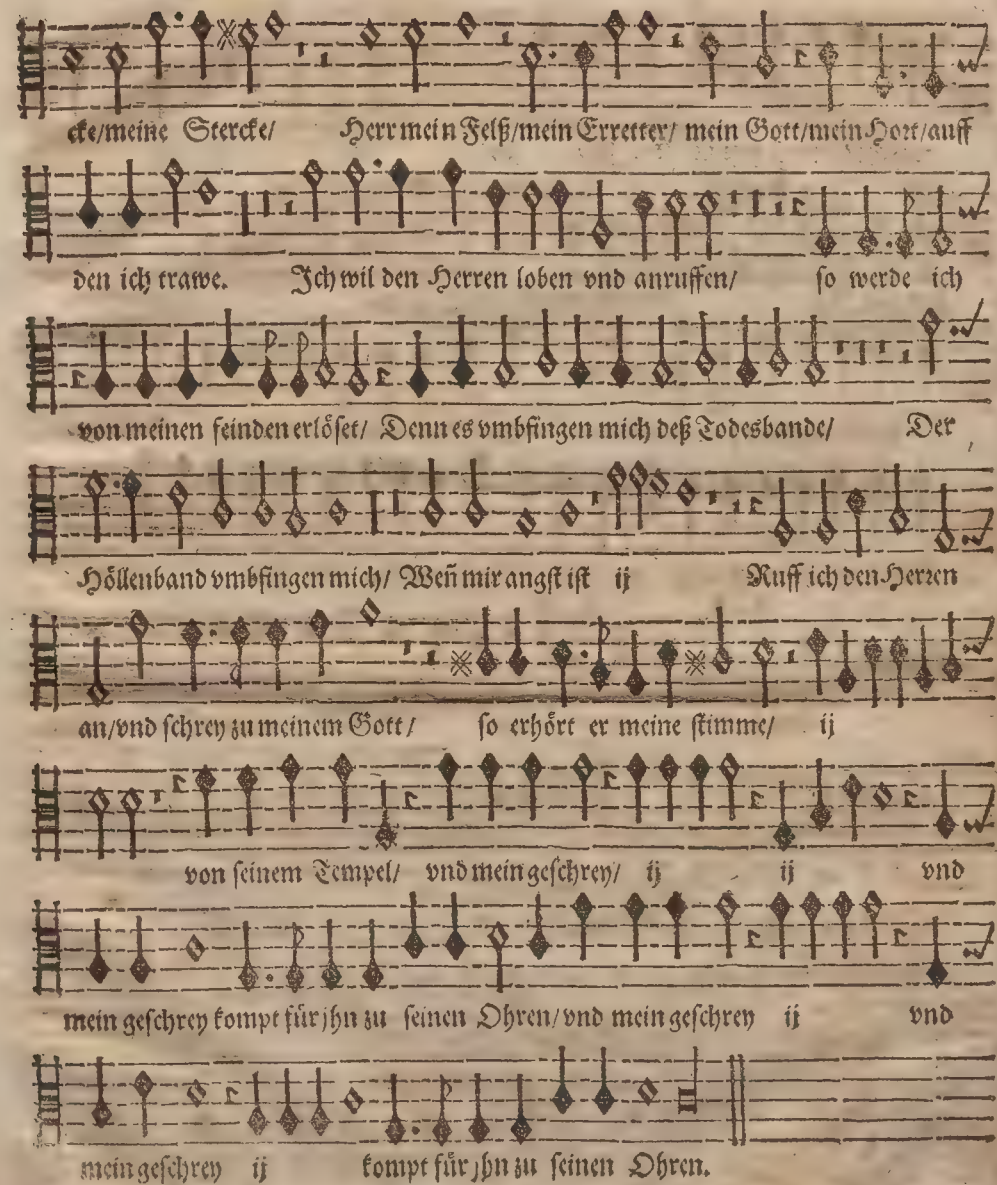 cke/meine Stercke/ Herr mein Felß/mein Erretter/ mein Gott/mein Hort/auff
den ich trawe. Ich wil den Herren loben vnd anruffen/ so werde ich
von meinen feinden erlöset/ Denn es vmbfingen mich deß Todesbande/ Der
Höllenband vmbfingen mich/ Weñ mir angst ist ij Ruff ich den Herren
an/vnd schrey zu meinem Gott/ so erhört er meine stimme/ ij
von seinem Tempel/ vnd mein geschrey/ ij ij vnd
mein geschrey kompt für jhn zu seinen Ohren/vnd mein geschrey ij vnd
mein geschrey ij kompt für jhn zu seinen Ohren.